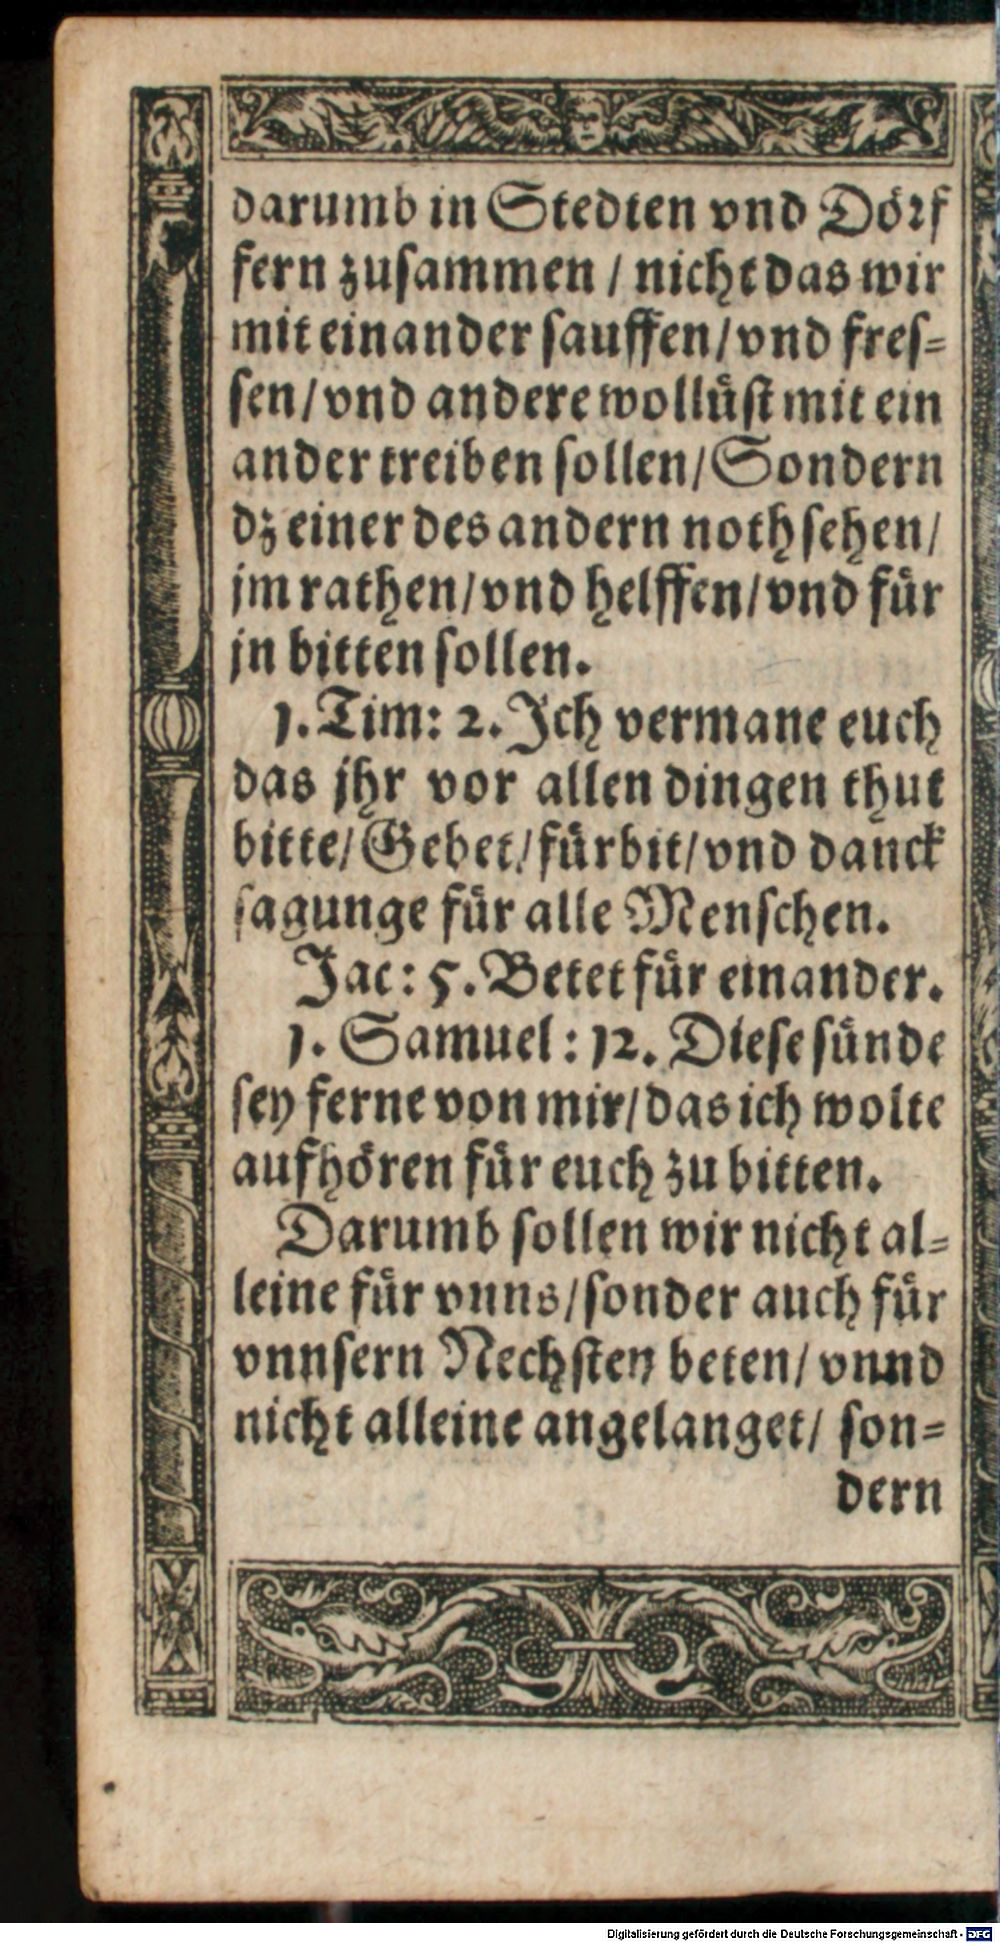 darumb in Stedten vnd Dörf
fern zuſammen / nicht das wir
mit einander ſauffen / vnd freſ⸗
ſen / vnd andere wollüſt mit ein
ander treiben ſollen / Sondern
dz einer des andern noth ſehen /
jm rathen / vnd helffen / vnd für
jn bitten ſollen.
1. Tim: 2. Ich vermane euch
das jhr vor allen dingen thut
bitte / Gebet / fürbit / vnd danck
ſagunge für alle Menſchen.
Jac: 5. Betet für einander.
1. Samuel: 12. Dieſe ſünde
ſey ferne von mir / das ich wolte
aufhören für euch zu bitten.
Darumb ſollen wir nicht al⸗
leine für vnns / ſonder auch für
vnnſern Nechſten beten / vnnd
nicht alleine angelanget / ſon⸗
dern
Digitalisierung gefördert durch die Deutsche Forschungsgemeinschaft - DFG